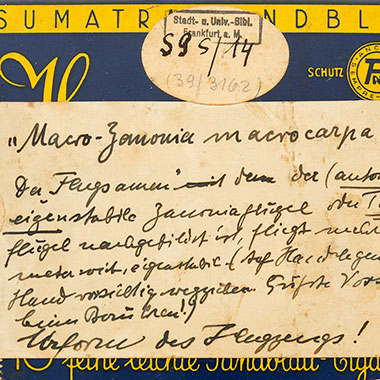 SUMATRA SANDBL
Stadt- u. Univ.-Bibl.
Frankfurt a. M.
S9 5/14
(39/3162)
SCHUTZ
"Macro-Zanonia macrocarpa
Der Flugsamen mit dem der (autom
eigenstabile Zanoniaflügel oder T
flügel nachgebildet ist, fliegt mehr
meter weit, eigenstabil (Auf Hand legen
Hand vorsichtig wegziehen. Größte Vors
beim Berühren!)
Urform des Flugzeugs!
10 feine leichte Sandblatt-Ziga